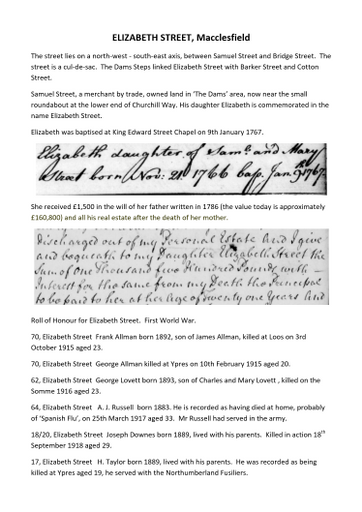 ELIZABETH STREET, Macclesfield
The street lies on a north-west - south-east axis, between Samuel Street and Bridge Street. The
street is a cul-de-sac. The Dams Steps linked Elizabeth Street with Barker Street and Cotton
Street.
Samuel Street, a merchant by trade, owned land in 'The Dams' area, now near the small
roundabout at the lower end of Churchill Way. His daughter Elizabeth is commemorated in the
name Elizabeth Street.
Elizabeth was baptised at King Edward Street Chapel on 9th January 1767.
Elizabeth daughter of Saml. and Mary
Street born Nov: 21 1766 bap. Jan 9 1767
She received £1,500 in the will of her father written in 1786 (the value today is approximately
£160,800) and all his real estate after the death of her mother.
discharged out of my Personal Estate And I give
and bequeath to my Daughter Elizabeth Street the
Sum of One Thousand five Hundred Pounds with
Interest for the same from my Death the Principal
to be paid to her at her Age of twenty one Years And
Roll of Honour for Elizabeth Street. First World War.
70, Elizabeth Street Frank Allman born 1892, son of James Allman, killed at Loos on 3rd
October 1915 aged 23.
70, Elizabeth Street George Allman killed at Ypres on 10th February 1915 aged 20.
62, Elizabeth Street George Lovett born 1893, son of Charles and Mary Lovett , killed on the
Somme 1916 aged 23.
64, Elizabeth Street A. J. Russell born 1883. He is recorded as having died at home, probably
of 'Spanish Flu', on 25th March 1917 aged 33. Mr Russell had served in the army.
18/20, Elizabeth Street Joseph Downes born 1889, lived with his parents. Killed in action 18th
September 1918 aged 29.
17, Elizabeth Street H. Taylor born 1889, lived with his parents. He was recorded as being
killed at Ypres aged 19, he served with the Northumberland Fusiliers.